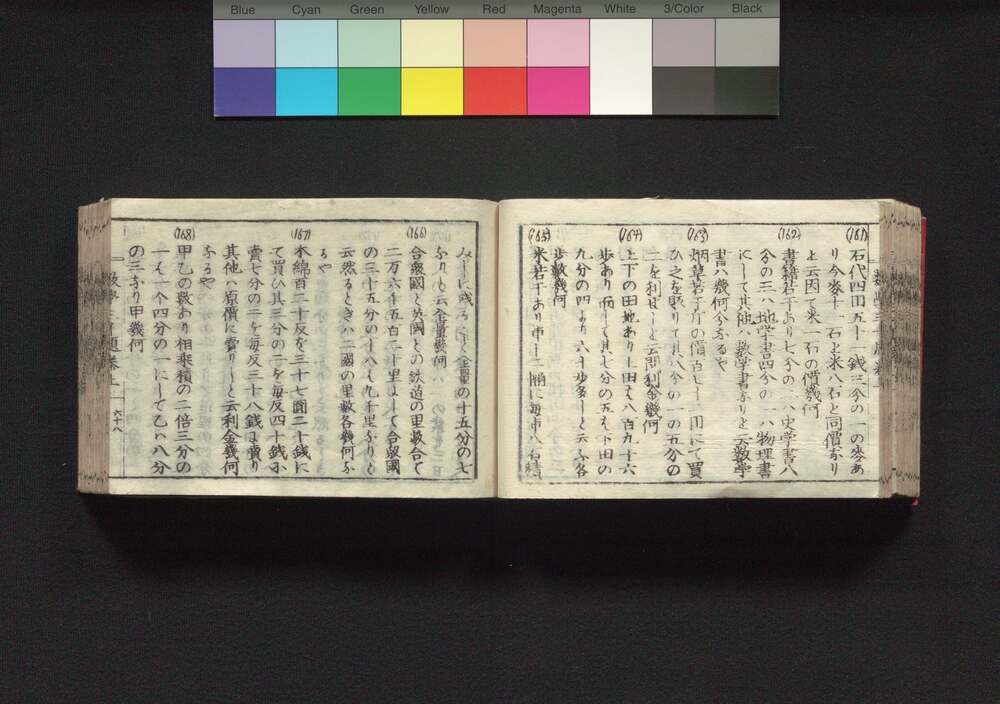 Blue Cyan Green Yellow Red Magenta White 3/Color Black
(161)
石代四円五十一銭三分の一の麥あ
り今麥十一石と米八石と同價なり
と云因て米一石の價幾何
(162)
書籍若干あり七分の一ハ史学書八
分の三ハ地学書四分の一ハ物理書
にして其他ハ数学書なりと云数学
書ハ幾何今なるや
(163)
烟草若干斤の價百七十二円にて買
ひ之を賣りて其八分の一の五分の
二を利せしと云問利金幾何
(164)
上下の田地あり上田ハ八百九十六
歩あり而して其七分の五ハ下田の
九分の四より六十歩多しと云ふ各
歩数幾何
(165)
米若干あり市十二桶に毎市八石積
みしに残ること全量の十五分の七
なりと云全量幾何
(166)
合衆國と英國との鉄道の里数合て
二万六千五百二十里にして合衆國
の三十五分の十八ハ九千里なりと
云然るときハ二國の里数各幾何な
るや
(167)
木綿百二十反を三十七圓二十銭に
て買ひ其三分の二を毎反四十銭に
賣七分の二を毎反三十八銭に賣り
其他ハ原價に賣りしと云利金幾何
なるや
(168)
甲乙の数あり相乗積の二倍三分の
一ハ一个四分の一にして乙ハ八分
の三なり甲幾何
六十八